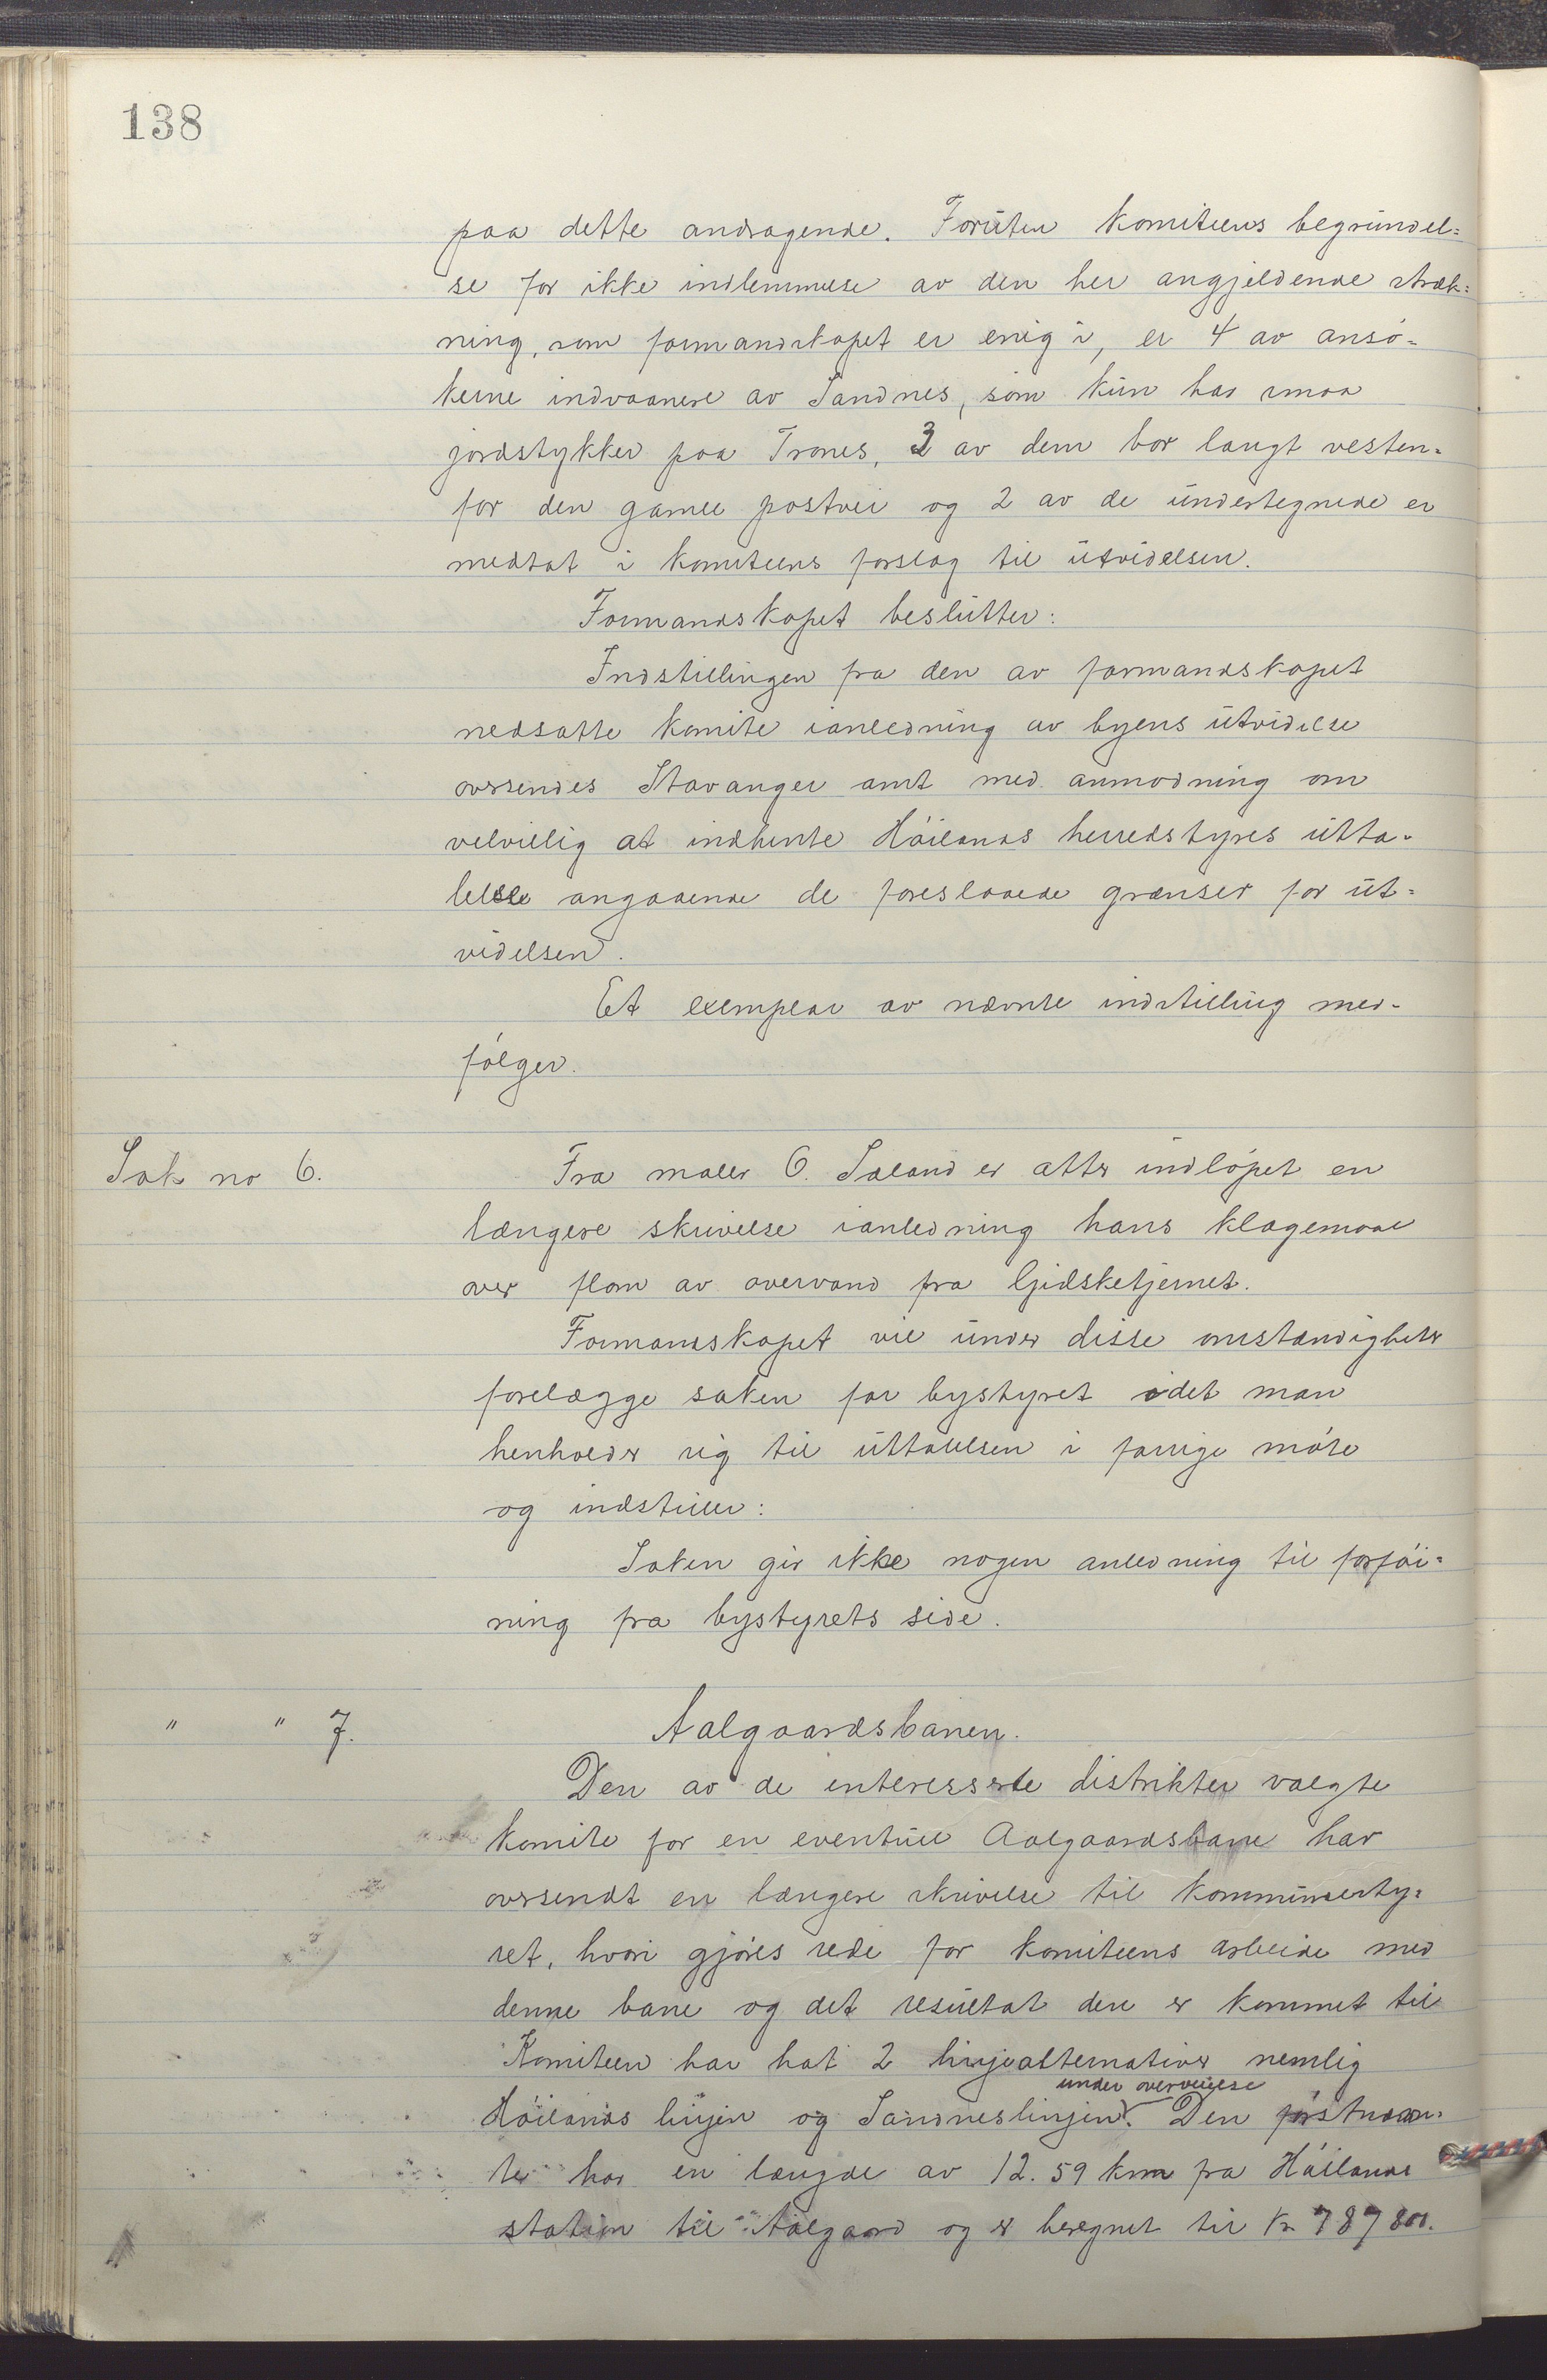 138
paa dette andragende. Foruten komiteens begrundel=
se for ikke indlemmelse av den her angjeldende stræk=
ning, som formandskapet er enig i, er 4 av ansø-
kerne indvaanere av Sandnes, som kun har smaa
jordstykker paa Trones, 3 av dem bor langt vesten-
for den gamle postvei og 2 av de undertegnede er
medtat i komiteens forslag til utvidelsen.
Formandskapet beslutter:
Indstillingen fra den av formandskapet
nedsatte komite ianledning av byens utvidelse
oversendes Stavanger amt med anmodning om
velvillig at indhente Høilands herredstyres utta-
lelse angaaende de foreslaaede grænser for ut-
videlsen.
Et exemplar av nævnte indstilling med-
følger.
Sak no 6.
Fra maler O. Sæland er atter indløpet en
længere skrivelse ianledning hans klagemaal
over flom av overvand fra Gjidsketjernet.
Formandskapet vil under disse omstændigheter
forelægge saken for bystyret idet man
henholder sig til uttalelsen i forrige møte
og indstiller:
Saken gir ikke nogen anledning til forføi=
ning fra bystyrets side.
" " 7.
Aalgaardsbanen.
Den av de interesserte distrikter valgte
komite for en eventuel Aalgaardsbane har
oversendt en længere skrivelse til kommunesty=
ret, hvori gjøres rede for komiteens arbeide med
denne bane og det resultat den er kommet til
Komiteen har hat 2 linjealternativer nemlig
under overveielse
Høilands linjen og Sandneslinjen. Den førstnævn-
te har en længde av 12.59 km fra Høiland
station til Aalgaard og er beregnet til kr 787 800.